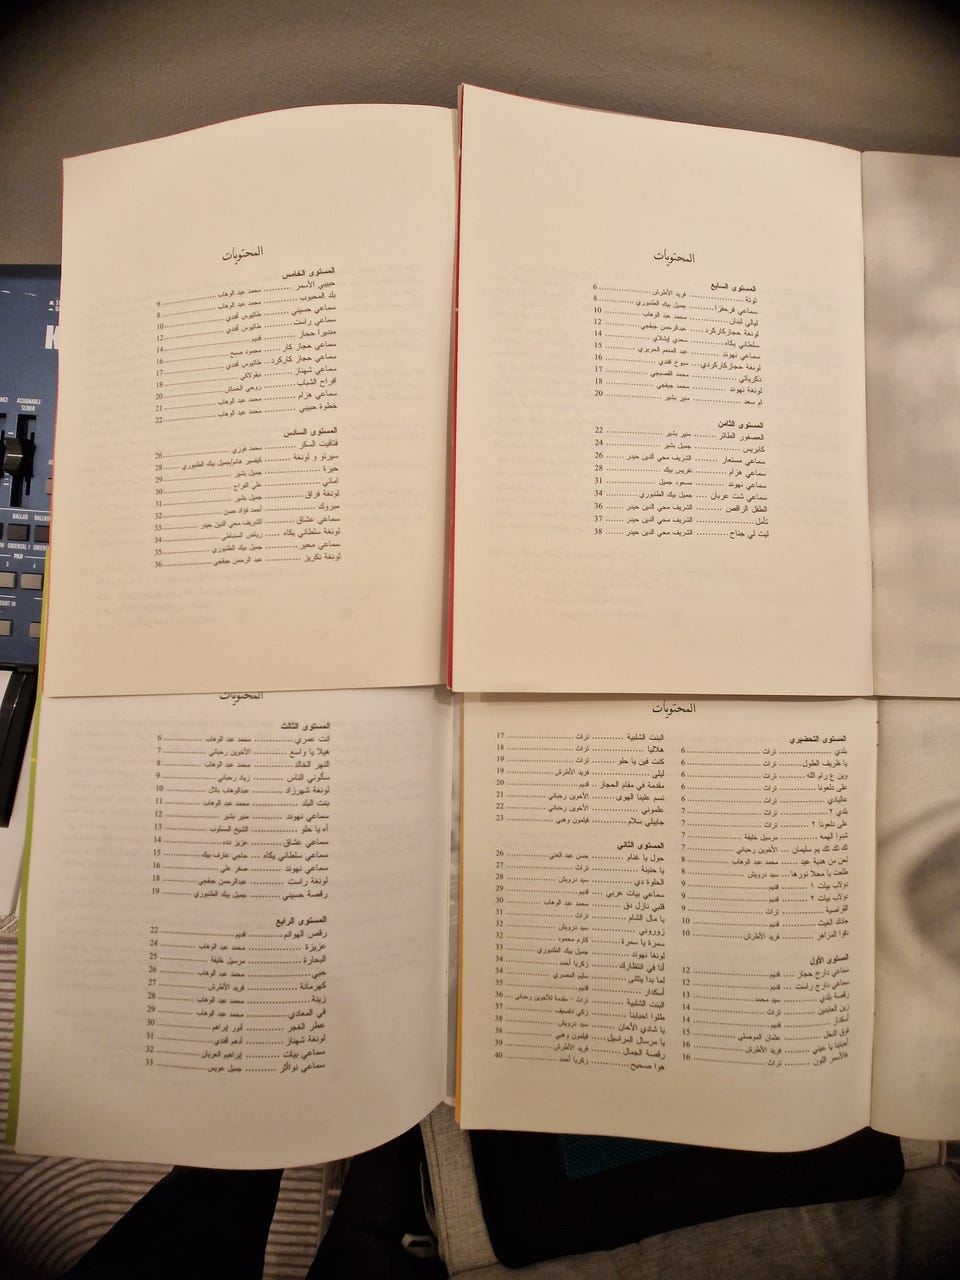 المحتويات
المستوى الخامس
حبيبي الأسمر ............ محمد عبد الوهاب ............ 6
بلد المحبوب ............ محمد عبد الوهاب ............ 8
سماعي حسيني ............ طاتيوس أفندي ............ 10
سماعي راست ............ طاتيوس أفندي ............ 12
منديرا حجاز ............ قديم ............ 14
سماعي حجاز كار ............ محمود صبح ............ 16
سماعي حجاز كاركرد ............ طاتيوس أفندي ............ 17
سماعي شهناز ............ نيقولاكي ............ 18
أفراح الشباب ............ روحي الخماش ............ 20
سماعي هزام ............ محمد عبد الوهاب ............ 21
خطوة حبيبي ............ محمد عبد الوهاب ............ 22
المستوى السادس
فتافيت السكر ............ محمد فوزي ............ 26
سيرتو و لونغة ............ كيفسير هانم/جميل بيك الطنبوري ............ 28
حيرة ............ جميل بشير ............ 29
أماني ............ علي الفراج ............ 30
لونغة فراق ............ جميل بشير ............ 31
مبروك ............ أحمد فؤاد حسن ............ 32
سماعي عشاق ............ الشريف محي الدين حيدر ............ 33
لونغة سلطاني يكاه ............ رياض السنباطي ............ 34
سماعي محير ............ جميل بيك الطنبوري ............ 35
لونغة نكريز ............ عبد الرحمن جبقجي ............ 36
المحتويات
المستوى السابع
توتة ............ فريد الأطرش ............ 6
سماعي فرحفزا ............ جميل بيك الطنبوري ............ 8
ليالي لبنان ............ محمد عبد الوهاب ............ 10
لونغة حجازكاركرد ............ عبدالرحمن جبقجي ............ 12
سلطاني يكاه ............ سعدي إيشلاي ............ 14
سماعي نهوند ............ عبد المنعم الحريري ............ 15
لونغة حجازكاركردي ............ سبوح أفندي ............ 16
ذكرياتي ............ محمد القصبجي ............ 17
لونغة نهوند ............ محمد جبقجي ............ 18
أم سعد ............ منير بشير ............ 20
المستوى الثامن
العصفور الطائر ............ منير بشير ............ 22
كابريس ............ جميل بشير ............ 24
سماعي مستعار ............ الشريف محي الدين حيدر ............ 26
سماعي هزام ............ نفريس بيك ............ 28
سماعي نهوند ............ مسعود جميل ............ 31
سماعي شت عربان ............ جميل بيك الطنبوري ............ 34
الطفل الراقص ............ الشريف محي الدين حيدر ............ 36
تأمل ............ الشريف محي الدين حيدر ............ 37
ليت لي جناح ............ الشريف محي الدين حيدر ............ 38
المحتويات
المستوى الثالث
أنت عمري ............ محمد عبد الوهاب ............ 6
هيلا يا واسع ............ الأخوين رحباني ............ 7
النهر الخالد ............ محمد عبد الوهاب ............ 8
سألوني الناس ............ زياد رحباني ............ 9
لونغة شهرزاد ............ عبدالوهاب بلال ............ 10
بنت البلد ............ محمد عبد الوهاب ............ 11
سماعي نهوند ............ منير بشير ............ 12
آه يا حلو ............ الشيخ المسلوب ............ 13
سماعي عشاق ............ عزيز دده ............ 14
سماعي سلطاني يكاه ............ حاجي عارف بيك ............ 15
سماعي نهوند ............ صفر علي ............ 16
لونغة راست ............ عبدالرحمن جبقجي ............ 18
رقصة حسيني ............ جميل بيك الطنبوري ............ 19
المستوى الرابع
رقص الهوانم ............ قديم ............ 22
عزيزة ............ محمد عبد الوهاب ............ 24
البحارة ............ مرسيل خليفة ............ 25
حبي ............ محمد عبد الوهاب ............ 26
كهرمانة ............ فريد الأطرش ............ 27
زينة ............ محمد عبد الوهاب ............ 28
في المعادي ............ محمد عبد الوهاب ............ 29
عطر الغجر ............ أنور إبراهم ............ 30
لونغة شهناز ............ أدهم أفندي ............ 31
سماعي بيات ............ إبراهيم العريان ............ 32
سماعي نوأثر ............ جميل عويس ............ 33
المحتويات
المستوى التحضيري
بلدي ............ تراث ............ 6
يا ظريف الطول ............ تراث ............ 6
وين ع رام الله ............ تراث ............ 6
على دلعونا ............ تراث ............ 6
عالبادي ............ تراث ............ 6
بلدي ٢ ............ تراث ............ 7
على دلعونا ٢ ............ تراث ............ 7
شدوا الهمه ............ مرسيل خليفة ............ 7
تك تك تك يم سليمان ............ الأخوين رحباني ............ 7
لحن من هدية عيد ............ محمد عبد الوهاب ............ 8
طلعت يا محلا نورها ............ سيد درويش ............ 8
دولاب بيات ١ ............ قديم ............ 9
دولاب بيات ٢ ............ قديم ............ 9
القراصية ............ تراث ............ 9
جادك الغيث ............ قديم ............ 10
دقوا المزاهر ............ فريد الأطرش ............ 10
المستوى الأول
سماعي دارج حجاز ............ قديم ............ 12
سماعي دارج راست ............ قديم ............ 12
رقصة بلدي ............ سيد محمد ............ 13
زين العابدين ............ تراث ............ 14
أسكدار ............ قديم ............ 14
فوق النخل ............ عثمان الموصلي ............ 15
أحبابنا يا عيني ............ فريد الأطرش ............ 16
هالأسمر اللون ............ تراث ............ 16
البنت الشلبية ............ تراث ............ 17
هلاليا ............ تراث ............ 18
كنت فين يا حلو ............ تراث ............ 19
ليلى ............ فريد الأطرش ............ 19
مقدمة في مقام الحجاز ............ قديم ............ 20
نسم علينا الهوى ............ الأخوين رحباني ............ 21
علموني ............ الأخوين رحباني ............ 22
جايبلي سلام ............ فيلمون وهبي ............ 23
المستوى الثاني
حول يا غنام ............ حسن عبد الغني ............ 26
يا حنينة ............ تراث ............ 27
الحلوة دي ............ سيد درويش ............ 28
سماعي بيات عربي ............ قديم ............ 29
قلبي نازل دق ............ محمد عبد الوهاب ............ 30
يا مال الشام ............ تراث ............ 31
زوروني ............ سيد درويش ............ 32
سمرة يا سمرة ............ كارم محمود ............ 32
لونغا نهوند ............ جميل بيك الطنبوري ............ 33
أنا في انتظارك ............ زكريا أحمد ............ 34
لما بدا يتثنى ............ سليم المصري ............ 34
أسكدار ............ قديم ............ 35
البنت الشلبية ............ تراث - مقدمة للأخوين رحباني ............ 36
طلوا احبابنا ............ زكي ناصيف ............ 37
يا شادي الألحان ............ سيد درويش ............ 38
يا مرسال المراسيل ............ فيلمون وهبي ............ 38
رقصة الجمال ............ فريد الأطرش ............ 39
هوا صحيح ............ زكريا أحمد ............ 40
ASSIGNABLE
SLIDER
BALLAD
ORIENTAL 1
PAD
5
4